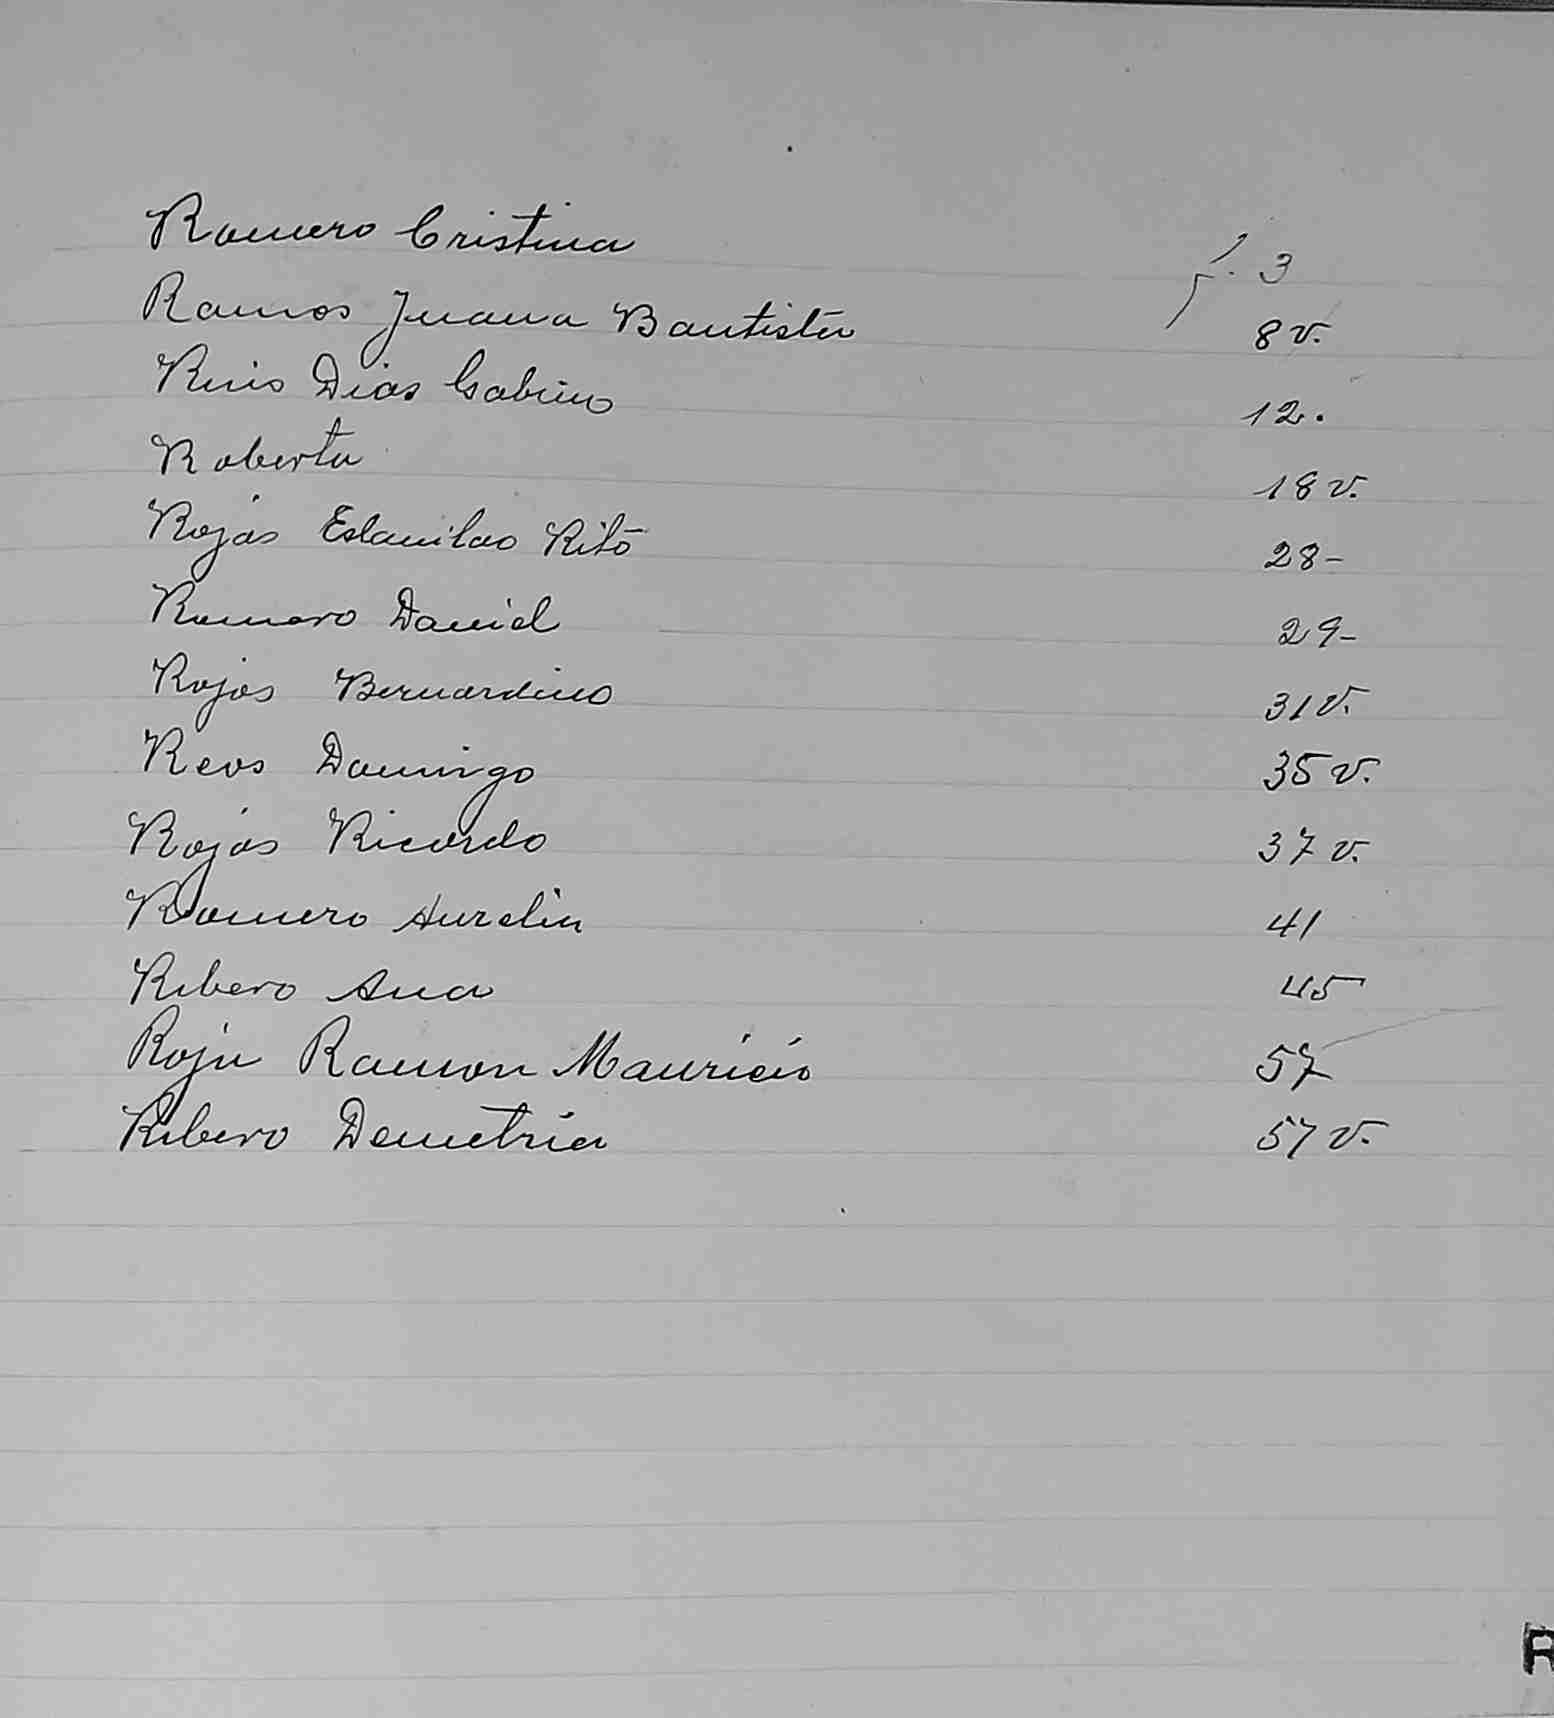 Romero Cristina f. 3
Ramos Juana Bautista 8 v.
Ruis Dias Gabino 12.
Roberta 18 v.
Rojas Eslanilao Rito 28-
Romero Daniel 29-
Rojas Bernardino 31 v.
Reos Domingo 35 v.
Rojas Ricardo 37 v.
Romero Aurelia 41
Ribero Ana 45
Roja Ramon Mauricio 57
Ribero Demetria 57 v.
R